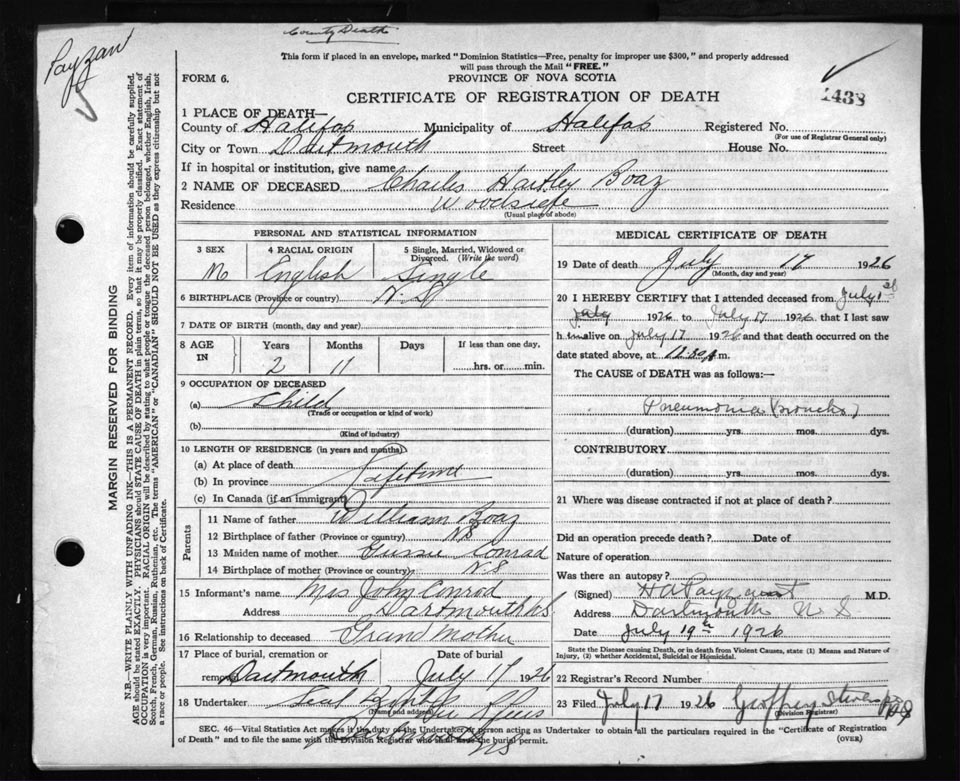 County Death
Payzant
This form if placed in an envelope, marked "Dominion Statistics—Free, penalty for improper use $300," and properly addressed
will pass through the Mail "FREE."
FORM 6.
PROVINCE OF NOVA SCOTIA
1438
CERTIFICATE OF REGISTRATION OF DEATH
1 PLACE OF DEATH—
County of Halifax Municipality of Halifax Registered No.
(For use of Registrar General only)
City or Town Dartmouth Street House No.
If in hospital or institution, give name
2 NAME OF DECEASED Charles Hartley Boaz
Residence Woodside
(Usual place of abode)
PERSONAL AND STATISTICAL INFORMATION
3 SEX 4 RACIAL ORIGIN 5 Single, Married, Widowed or
Divorced. (Write the word)
M English Single
6 BIRTHPLACE (Province or country) N.S.
7 DATE OF BIRTH (month, day and year)
8 AGE IN Years Months Days If less than one day,
2 11 hrs. or min.
9 OCCUPATION OF DECEASED
(a) Child
(Trade or occupation or kind of work)
(b)
(Kind of industry)
10 LENGTH OF RESIDENCE (in years and months)
(a) At place of death
(b) In province Lifetime
(c) In Canada (if an immigrant)
Parents
11 Name of father William Boaz
12 Birthplace of father (Province or country) NS
13 Maiden name of mother Conrad
14 Birthplace of mother (Province or country) N.S
15 Informant's name Mrs John Conrad
Address Dartmouth NS
16 Relationship to deceased Grand Mother
17 Place of burial, cremation or Date of burial
removal Dartmouth July 17 1926
18 Undertaker
(Name and address)
MEDICAL CERTIFICATE OF DEATH
19 Date of death July 17 1926
(Month, day and year)
20 I HEREBY CERTIFY that I attended deceased from July 1st
July 1926 to July 17 1926, that I last saw
him alive on July 17 1926 and that death occurred on the
date stated above, at m.
The CAUSE of DEATH was as follows:—
Pneumonia (Broncho)
(duration) yrs. mos. dys.
CONTRIBUTORY
(duration) yrs. mos. dys.
21 Where was disease contracted if not at place of death?
Did an operation precede death? Date of
Nature of operation
Was there an autopsy?
(Signed) H A Payzant M.D.
Address Dartmouth N S
Date July 19th 1926
State the Disease causing Death, or in death from Violent Causes, state (1) Means and Nature of
Injury, (2) whether Accidental, Suicidal or Homicidal.
22 Registrar's Record Number
23 Filed July 17 1926 Geoffrey Stevens
(Division Registrar)
SEC. 46—Vital Statistics Act makes it the duty of the Undertaker or person acting as Undertaker to obtain all the particulars required in the "Certificate of Registration
of Death" and to file the same with the Division Registrar who shall issue the burial permit.
(OVER)
MARGIN RESERVED FOR BINDING
N.B.—WRITE PLAINLY WITH UNFADING INK—THIS IS A PERMANENT RECORD. Every item of information should be carefully supplied.
AGE should be stated EXACTLY. PHYSICIANS should STATE CAUSE OF DEATH in plain terms, so that it may be properly classified. Exact statement of
OCCUPATION is very important. RACIAL ORIGIN will be described by stating to what people or tongue the deceased person belonged, whether English, Irish,
Scotch, French, German, Russian, Ruthenian, etc. The terms "AMERICAN" or "CANADIAN" SHOULD NOT BE USED as they express citizenship but not
a race or people. See instructions on back of Certificate.